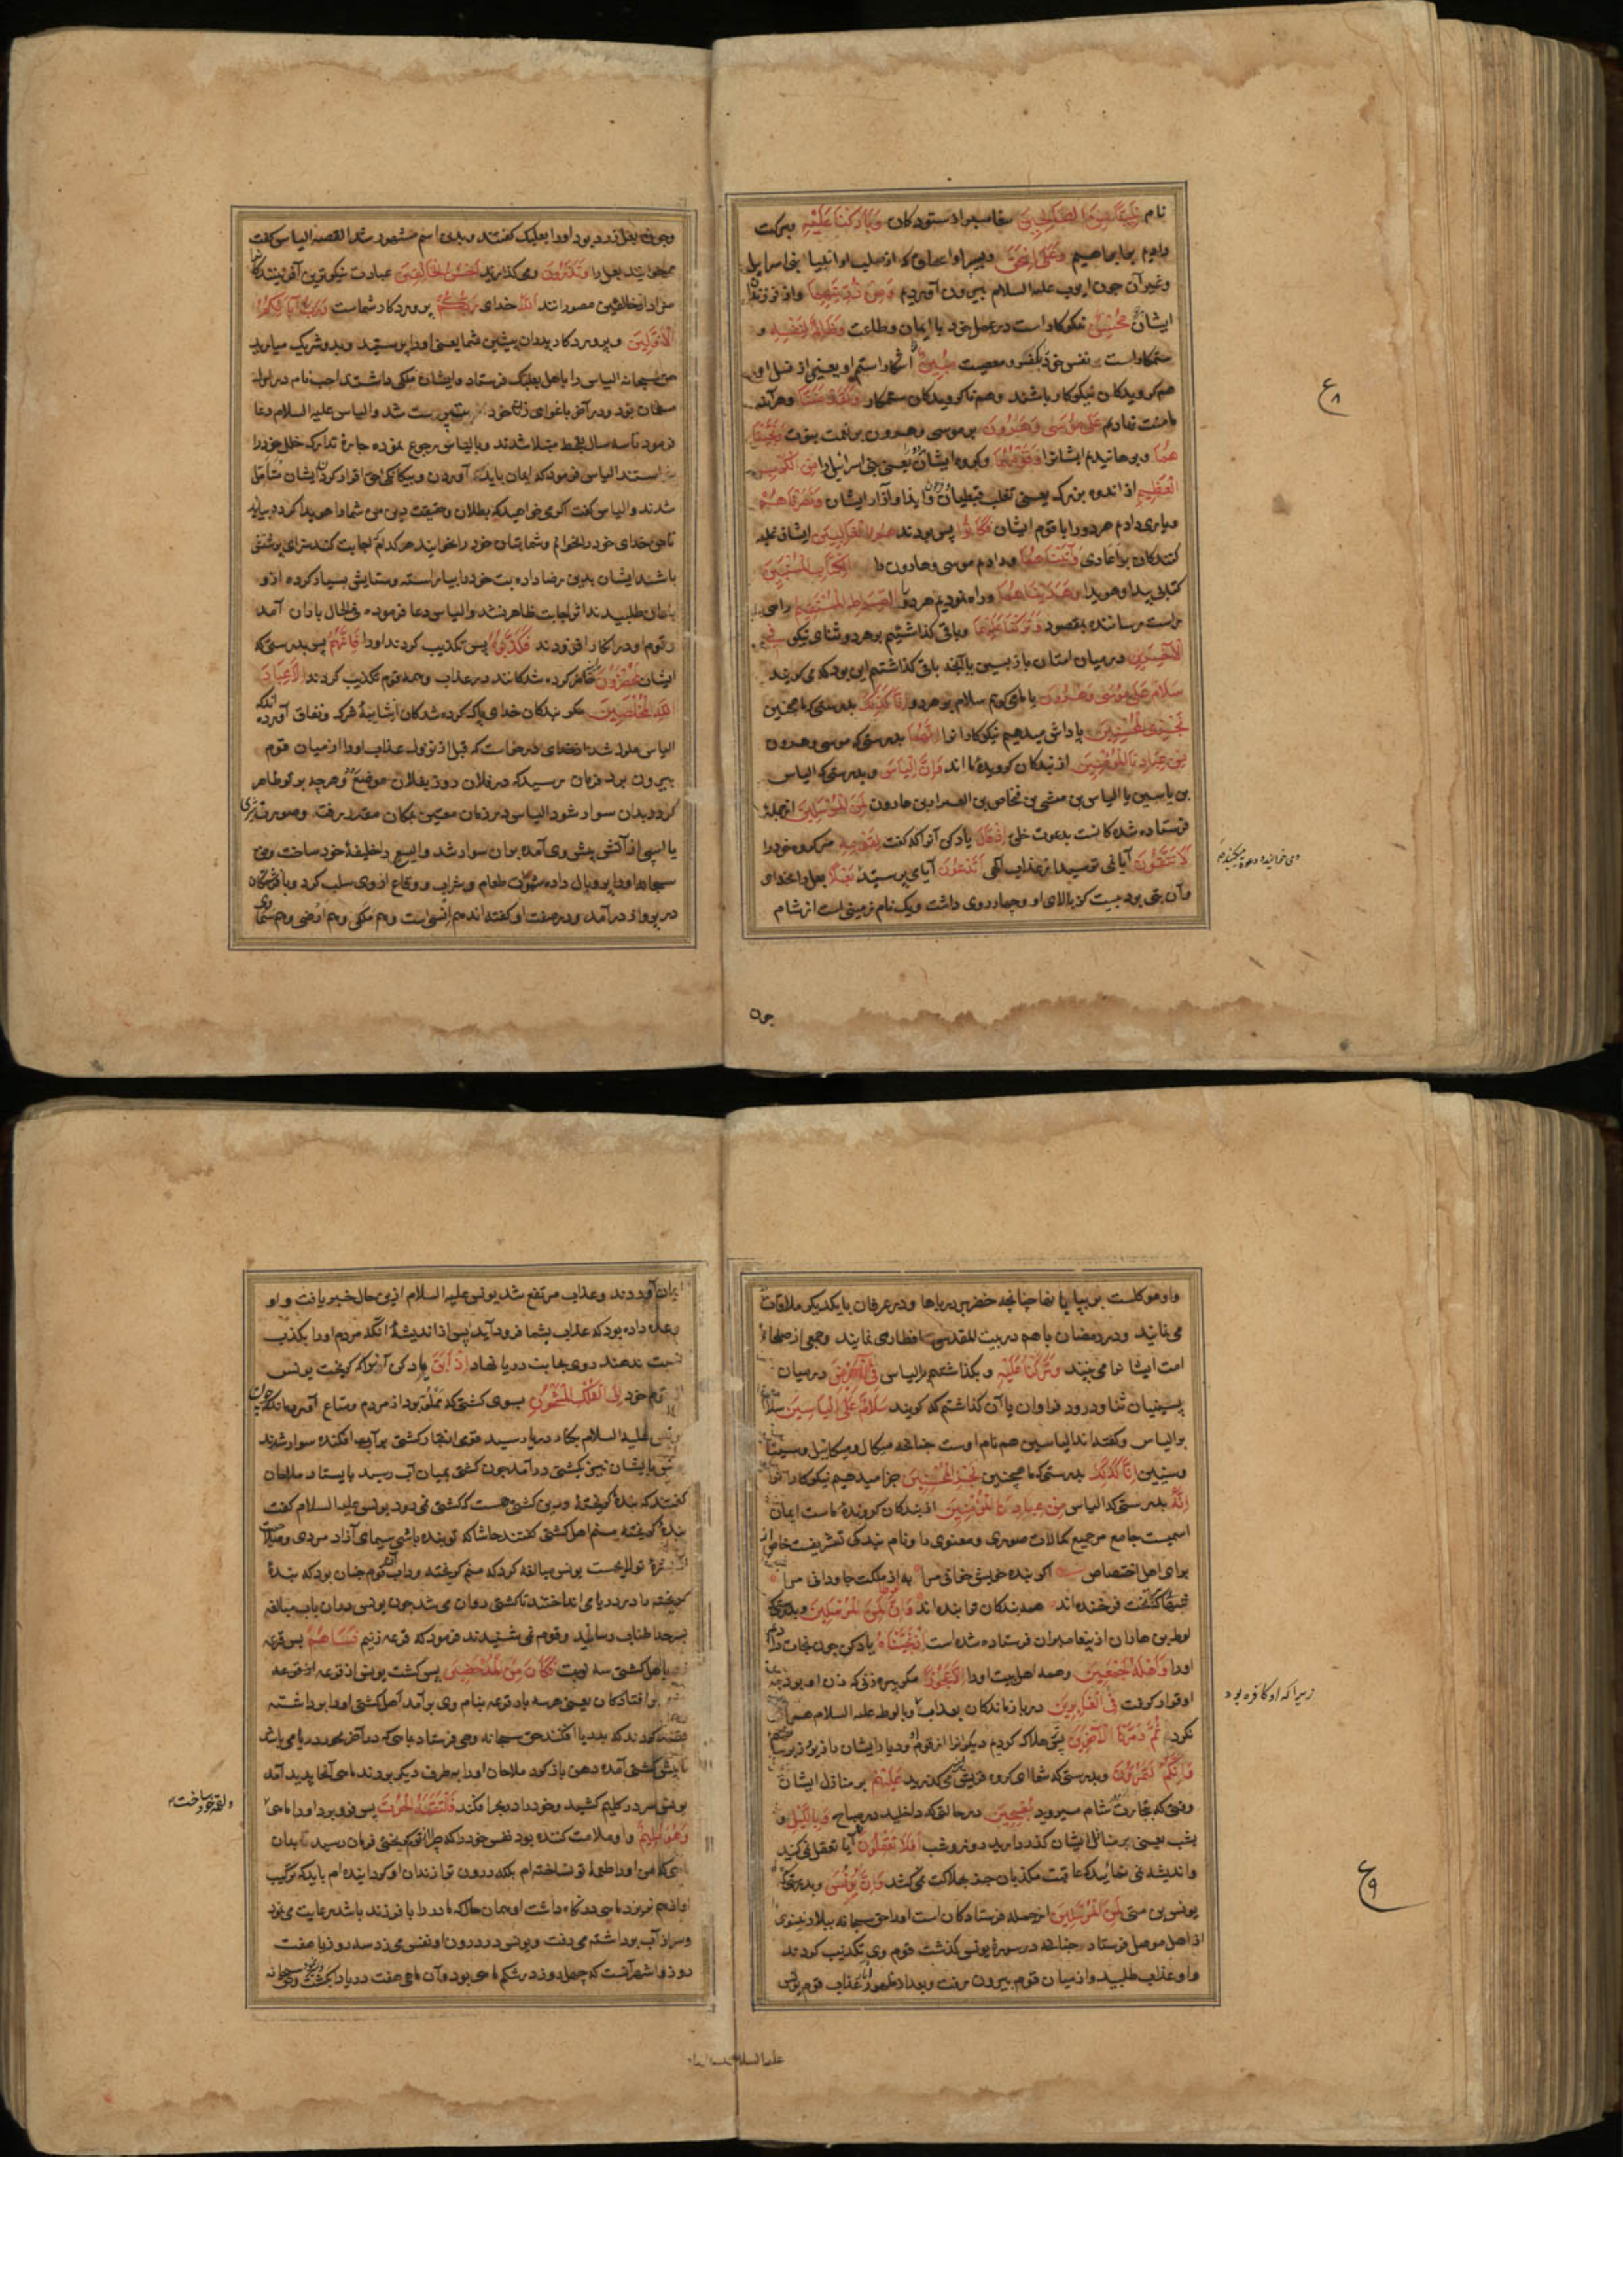 نام نَبِيًّا مِنَ الصَّالِحِينَ پیغامبر از ستودکان وَبَارَكْنَا عَلَيْهِ وبرکت
دادیم بر ابراهیم وَعَلَى إِسْحَقَ وبر اسحاق که از صلب او انبیا بنی اسرایل
وغیر آن چون ایوب علیه السلام بیرون آوردیم وَمِنْ ذُرِّيَّتِهِمَا واز فرزندان
ایشان مُحْسِنٌ نیکوکار است در عمل خود با ایمان وطاعت وَظَالِمٌ لِنَفْسِهِ و
ستمکار است بر نفس خود بکفر ومعصیت مُبِينٌ آشکارا ستم او یعنی از نسل او
هم کرویدکان نیکوکار باشند وهم ناکرویدکان ستمکار وَلَقَدْ مَنَنَّا وهر آینه
ما منت نهادیم عَلَى مُوسَى وَهَرُونَ بر موسی وهرون بر نعمت نبوت وَنَجَّيْنَا
هُمَا وبرهانیدیم ایشانرا وَقَوْمَهُمَا وکروه ایشان یعنی بنی اسرائیل را مِنَ الْكَرْبِ
الْعَظِيمِ از اندوه بزرک یعنی تغلب قبطیان وایذا وآزار ایشان وَنَصَرْنَاهُمْ
ویاری دادیم هر دو را با قوم ایشان فَكَانُوا پس بودند هُمُ الْغَالِبِينَ ایشان غلبه
کنندکان بر اعادی وَآتَيْنَاهُمَا ودادیم موسی وهارون را الْكِتَابَ الْمُسْتَبِينَ
کتابی پیدا وهویدا وَهَدَيْنَاهُمَا وراه نمودیم هر دو را الصِّرَاطَ الْمُسْتَقِيمَ راهی
راست رساننده بمقصود وَتَرَكْنَا عَلَيْهِمَا وباقی کذاشتیم بر هر دو ثنای نیکو فِي
الْآخِرِينَ در میان امتان بازپسین یا آنچه باقی کذاشتیم این بود که می کویند
سَلَامٌ عَلَى مُوسَى وَهَرُونَ یا ما می کویم سلام بر هر دو إِنَّا كَذَلِكَ بدرستی که ما همچنین
نَجْزِي الْمُحْسِنِينَ پاداش میدهیم نیکوکارانرا إِنَّهُمَا بدرستی که موسی وهرون
مِنْ عِبَادِنَا الْمُؤْمِنِينَ از بندکان کرویدهٔ ما اند وَإِنَّ إِلْيَاسَ وبدرستی که الیاس
بن یاسین یا الیاس بن مشی بن فنحاص بن العیزار بن هارون لَمِنَ الْمُرْسَلِينَ از جملهٔ
فرستاده شدکانست بدعوت خلق إِذْ قَالَ یاد کن آنرا که کفت لِقَوْمِهِ مر کروه خود را
أَلَا تَتَّقُونَ آیا نمی ترسید از عذاب الهی أَتَدْعُونَ آیا می پرستید بَعْلًا بعل را بخدای
وآن بتی بود بیست کز بالای او وچهار روی داشت وبک نام زمینی است از شام
چون
وچون بعل در بک بود او را بعلبک کفتند وبدین اسم مشهور شد القصه الیاس کفت
میخوانید بعل را وَتَذَرُونَ ومی کذارید أَحْسَنَ الْخَالِقِينَ عبادت نیکوترین آفرینندکان
اللَّهَ خدای رَبَّكُمْ پروردکار شماست وَرَبَّ آبَائِكُمُ
الْأَوَّلِينَ وپروردکار پدران پیشین شما یعنی او را پرستید وبدو شریک میارید
حق سبحانه الیاس را باهل بعلبک فرستاد وایشان ملکی داشتند اجب نام در اول از
مسلمان بود ودر آخر باغوای زن خود بت پرست شد والیاس علیه السلام دعا
فرمود تا سه سال بقحط مبتلا شدند وبالیاس رجوع نموده چارهٔ تدارک خلل خود را
الیاس فرمود که ایمان باید آوردن وبیکانکی حق اقرار کردن ایشان متأمل
شدند والیاس کفت اکر می خواهید که بطلان وحقیقت دین من شما را هویدا کردد بیایید
تا من خدای خود را بخوانم وشما بتان خود را بخوانید هر کدام اجابت کنند سزای پرستش
باشند ایشان بدین رضا داده بت خود را بیاراسته وستایش بسیار کرده از و
باران طلبیدند اثر اجابت ظاهر نشد والیاس دعا فرموده فی الحال باران آمد
وقوم او در انکار افزودند فَكَذَّبُوهُ پس تکذیب کردند او را فَإِنَّهُمْ پس بدرستی که
ایشان لَمُحْضَرُونَ حاضر کرده شدکانند در عذاب وهمه قوم تکذیب کردند إِلَّا عِبَادَ
اللَّهِ الْمُخْلَصِينَ مکر بندکان خدای پاک کرده شدکان از شایبهٔ شرک ونفاق
الیاس ملول شد از خدای درخواست که قبل از نزول عذاب او را از میان قوم
بیرون برد فرمان رسید که در فلان روز بفلان موضع رو وهرچه بر تو ظاهر
کردد بدان سوار شو الیاس در زمان معین بمکان مقدر برفته وصورت
یا اسپی از آتش پیش وی آمده بران سوار شد والیسع را خلیفهٔ خود ساخت وحق
سبحانه او را پر وبال داده شهوت طعام وشراب ووقاع از وی سلب کرد وبا فرشتکان
در پرواز در آمد ودر صفت او کفته اند هم انسی است وهم ملکی وهم ارضی وهم سمای
ع ۸
واو موکلست بر بیابانها چنانچه خضر بر دریاها ودر عرفان با یکدیکر ملاقات
می نمایند ودر رمضان با هم در بیت المقدس افطار می نمایند وجمعی از صلحاء
امت ایشانرا می بینند وَتَرَكْنَا عَلَيْهِ وبکذاشتیم بر الیاس فِي الْآخِرِينَ در میان
پسینیان ثنا ودرود فراوان یا آن کذاشتیم که کویند سَلَامٌ عَلَى إِلْيَاسِينَ سلام
بر الیاس وکفته اند الیاسین هم نام اوست چنانچه میکال ومیکائیل وسینا
وسینین إِنَّا كَذَلِكَ بدرستی که ما همچنین نَجْزِي الْمُحْسِنِينَ جزا میدهیم نیکوکارانرا
إِنَّهُ بدرستی که الیاس مِنْ عِبَادِنَا الْمُؤْمِنِينَ از بندکان کرویدهٔ ماست ایمان
اسمیست جامع مر جمیع کمالات صوری ومعنوی را ونام بندکی تشریفت خاص از
برای اهل اختصاص اکر بنده خویش خوانی مرا به از مملکت جاودانی مرا
فرخنده اند همه بندکان ترا بنده اند وَإِنَّ لُوطًا لَمِنَ الْمُرْسَلِينَ وبدرستی که
لوط بن هاران از پیغامبران فرستاده شده است إِذْ نَجَّيْنَاهُ یاد کن چون نجات دادیم
او را وَأَهْلَهُ أَجْمَعِينَ وهمه اهل بیت او را إِلَّا عَجُوزًا مکر پیره زنی که زن او بود
او قرار کرفت فِي الْغَابِرِينَ در باز ماندکان بعذاب وبا لوط علیه السلام همراهی
نکرد ثُمَّ دَمَّرْنَا الْآخَرِينَ پس هلاک کردیم دیکرانرا از قوم او ودیار ایشان را زیر وزبر ساختیم
وَإِنَّكُمْ لَتَمُرُّونَ وبدرستی که شما ای کروه قریش می کذرید عَلَيْهِمْ بر منازل ایشان
وقتی که بتجارت شام میروید مُصْبِحِينَ در حالتی که داخلید در صباح وَبِاللَّيْلِ و
بشب یعنی بر منازل ایشان کذر دارید روز وشب أَفَلَا تَعْقِلُونَ آیا تعقل نمی کنید
واندیشه نمی نمائید که عاقبت مکذبان جز بهلاکت نمی کشد وَإِنَّ يُونُسَ وبدرستی که
یونس بن متی لَمِنَ الْمُرْسَلِينَ از جمله فرستادکان است او را حق سبحانه ببلاد نینوی
از اهل موصل فرستاد چنانچه در سورهٔ یونس کذشت قوم وی تکذیب کردند
واو عذاب طلبید واز میان قوم بیرون رفت وبعد از ظهور عذاب قوم یونس
علیه السلام
زیرا که او کافره بود
ع ۹
ایمان آوردند وعذاب مرتفع شد یونس علیه السلام ازین حال خبر یافت واو
وعده داده بود که عذاب بشما فرود آید پس از اندیشهٔ آنکه مردم او را بکذب
نسبت ندهند روی بجانب دریا نهاد إِذْ أَبَقَ یاد کن آنرا که کریخت یونس
از قوم خود إِلَى الْفُلْكِ الْمَشْحُونِ بسوی کشتی که مملو بود از مردم ومتاع
یونس علیه السلام بکنار دریا رسید قومی انجا کشتی بر آب افکنده سوار شدند
یونس با ایشان نیز بکشتی در آمد چون کشتی بمیان آب رسید بایستاد ملاحان
کفتند که بندهٔ کریخته درین کشتی هست که کشتی نمی رود یونس علیه السلام کفت
بندهٔ کریخته منم اهل کشتی کفتند حاشا که تو بنده باشی سیمای آزاد مردی وصلاح
یونس مبالغه کرد که منم کریخته وداب آن قوم چنان بود که بندهٔ
کریخته را در دریا می انداختند تا کشتی روان می شد چون یونس دران باب مبالغه
بسرحد اطناب رسانید وقوم نمی شنیدند فرمود که قرعه زنیم فَسَاهَمَ پس قرعه
با اهل کشتی سه نوبت فَكَانَ مِنَ الْمُدْحَضِينَ پس کشت یونس از قرعه
افتادکان یعنی هر سه بار قرعه بنام وی بر آمد اهل کشتی او را برداشته
کردند که بدریا افکنند حق سبحانه وحی فرستاد بماهی که در آخر بحر در یا می باشد
تا پیش کشتی آمده دهن باز کرد ملاحان او را بطرف دیکر بردند ماهی آنجا پدید آمد
یونس سر در کلیم کشید وخود را در بحر افکند فَالْتَقَمَهُ الْحُوتُ پس فرو برد او را ماهی
وَهُوَ مُلِيمٌ واو ملامت کننده بود نفس خود را که چرا از قوم کریختی فرمان رسید بدان
ماهی که من او را طعمهٔ تو نساخته ام بلکه درون ترا زندان او کردانیده ام باید که ترکیب
او از هم نریزد ماهی در نکاه داشت او همان حال که مادر را با فرزند باشد رعایت می نمود
وسر از آب برداشته می رفت ویونس در درون او نفس می زد سه روز یا هفت
روز واشهر آنست که چهل روز در شکم ماهی بود وآن ماهی هفت دریا را بکشت وحق سبحانه